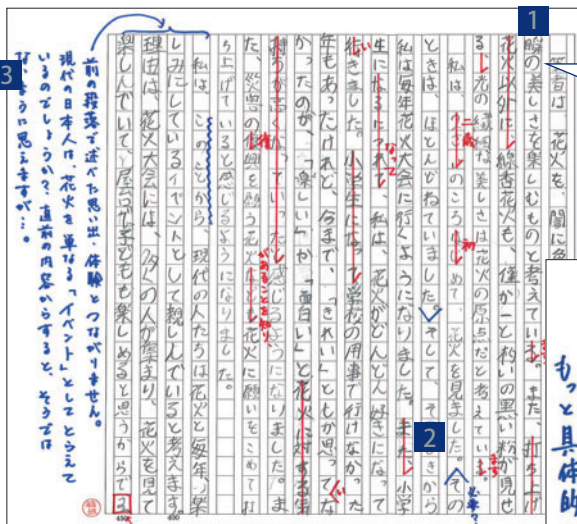 1
者は、花火を、闇に
瞬の美しさを楽しむものと考えています。また、打ち上げ
花火以外に、線香花火も、僅か一と掬いの黒い粉が見せ
る、光の 美しさは花火の原点だと考えています。
私は、二歳のころ初めて、花火を見ました。その
必要?
ときは、ほとんどねていました。そして、そのときから
私は毎年花火大会に行くようになりました。また、小学
2
生になるにつれて、私は、花火がどんどん好きになって
なって
いきました。小学生になって学校の用事で行けなかった
年もあったけれど、今まで、「きれい」ともか思ってな
かったのが、「楽しい」か「面白い」と花火に対する気
持ちが高くなっていったと感じるようになりました。ま
た、災害の復興を願う花火 花火に願いをこめて打
があることを知り、
ち上げていると感じるようになりました。
私は、このことから、現代の人たちは花火を毎年、楽
しみにしているイベントとして親しんでいると考えます。
理由は、花火大会には、多くの人が集まり、花火を見て
楽しんでいて、屋台が子どもも楽しめると思うからです
400
450
3
前の段落で述べた思い出・体験とつながりません。
現代の日本人は、花火を単なる「イベント」としてとらえて
いるのでしょうか?直前の内容からすると、そうでは
ないように思えますが…。
もっと具体的